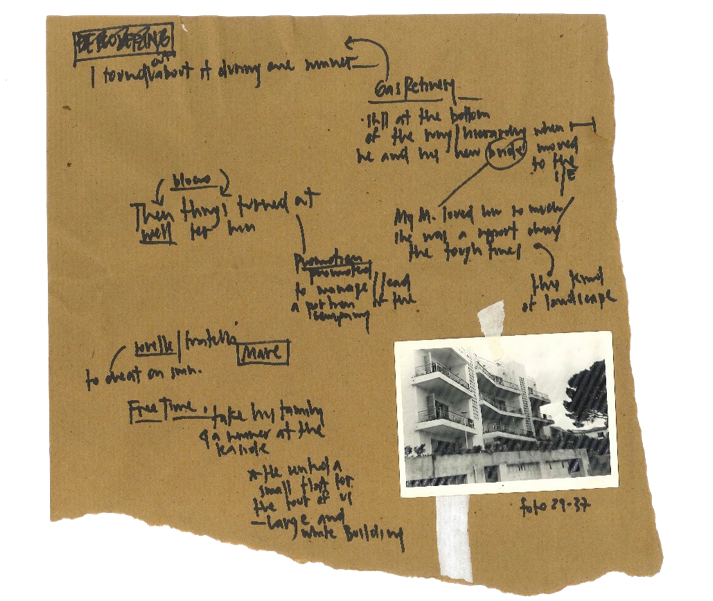 I found out about it during one summer
Gas Refinery
still at the bottom
of the way / hierarchy when
he and his new bride moved
to the
blows
Then things turned out
well for him
My M. loved him so much
she was a support during
the tough times
this kind
of landscape
Promotion
promoted
to manage / lead
a portion of the
company
sorelle / fratelli
Mare
to cheat on
Free Time. take his family
4 a summer at the
seaside
* He rented a
small flat for
the four of us
- Large and
white Building
foto 29-37